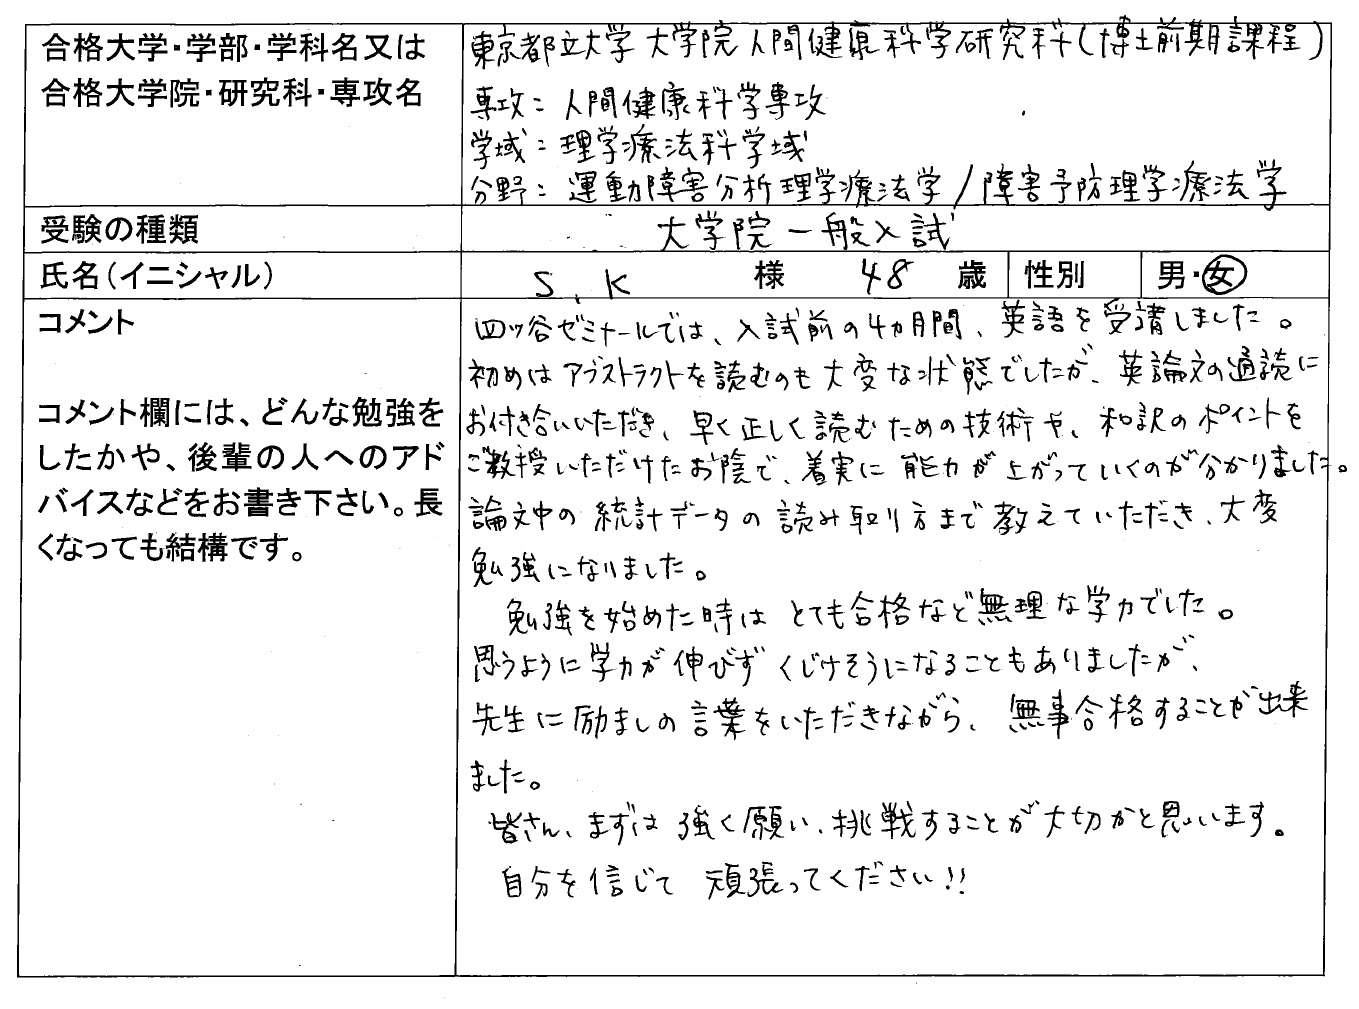 合格大学・学部・学科名又は
合格大学院・研究科・専攻名
東京都立大学 大学院 人間健康科学研究科(博士前期課程)
専攻：人間健康科学専攻
学域：理学療法科学域
分野：運動障害分析理学療法学/障害予防理学療法学
受験の種類
大学院一般入試
氏名(イニシャル)
S.K 様 48 歳 性別 男・女
コメント
コメント欄には、どんな勉強を
したかや、後輩の人へのアド
バイスなどをお書き下さい。長
くなっても結構です。
四ッ谷ゼミナールでは、入試前の4カ月間、英語を受講しました。
初めはアブストラクトを読むのも大変な状態でしたが、英論文の通読に
お付き合いいただき、早く正しく読むための技術や、和訳のポイントを
ご教授いただけたお陰で、着実に能力が上がっていくのが分かりました。
論文中の統計データの読み取り方まで教えていただき、大変
勉強になりました。
勉強を始めた時はとても合格など無理な学力でした。
思うように学力が伸びずくじけそうになることもありましたが、
先生に励ましの言葉をいただきながら、無事合格することが出来
ました。
皆さん、まずは強く願い、挑戦することが大切かと思います。
自分を信じて頑張ってください!!